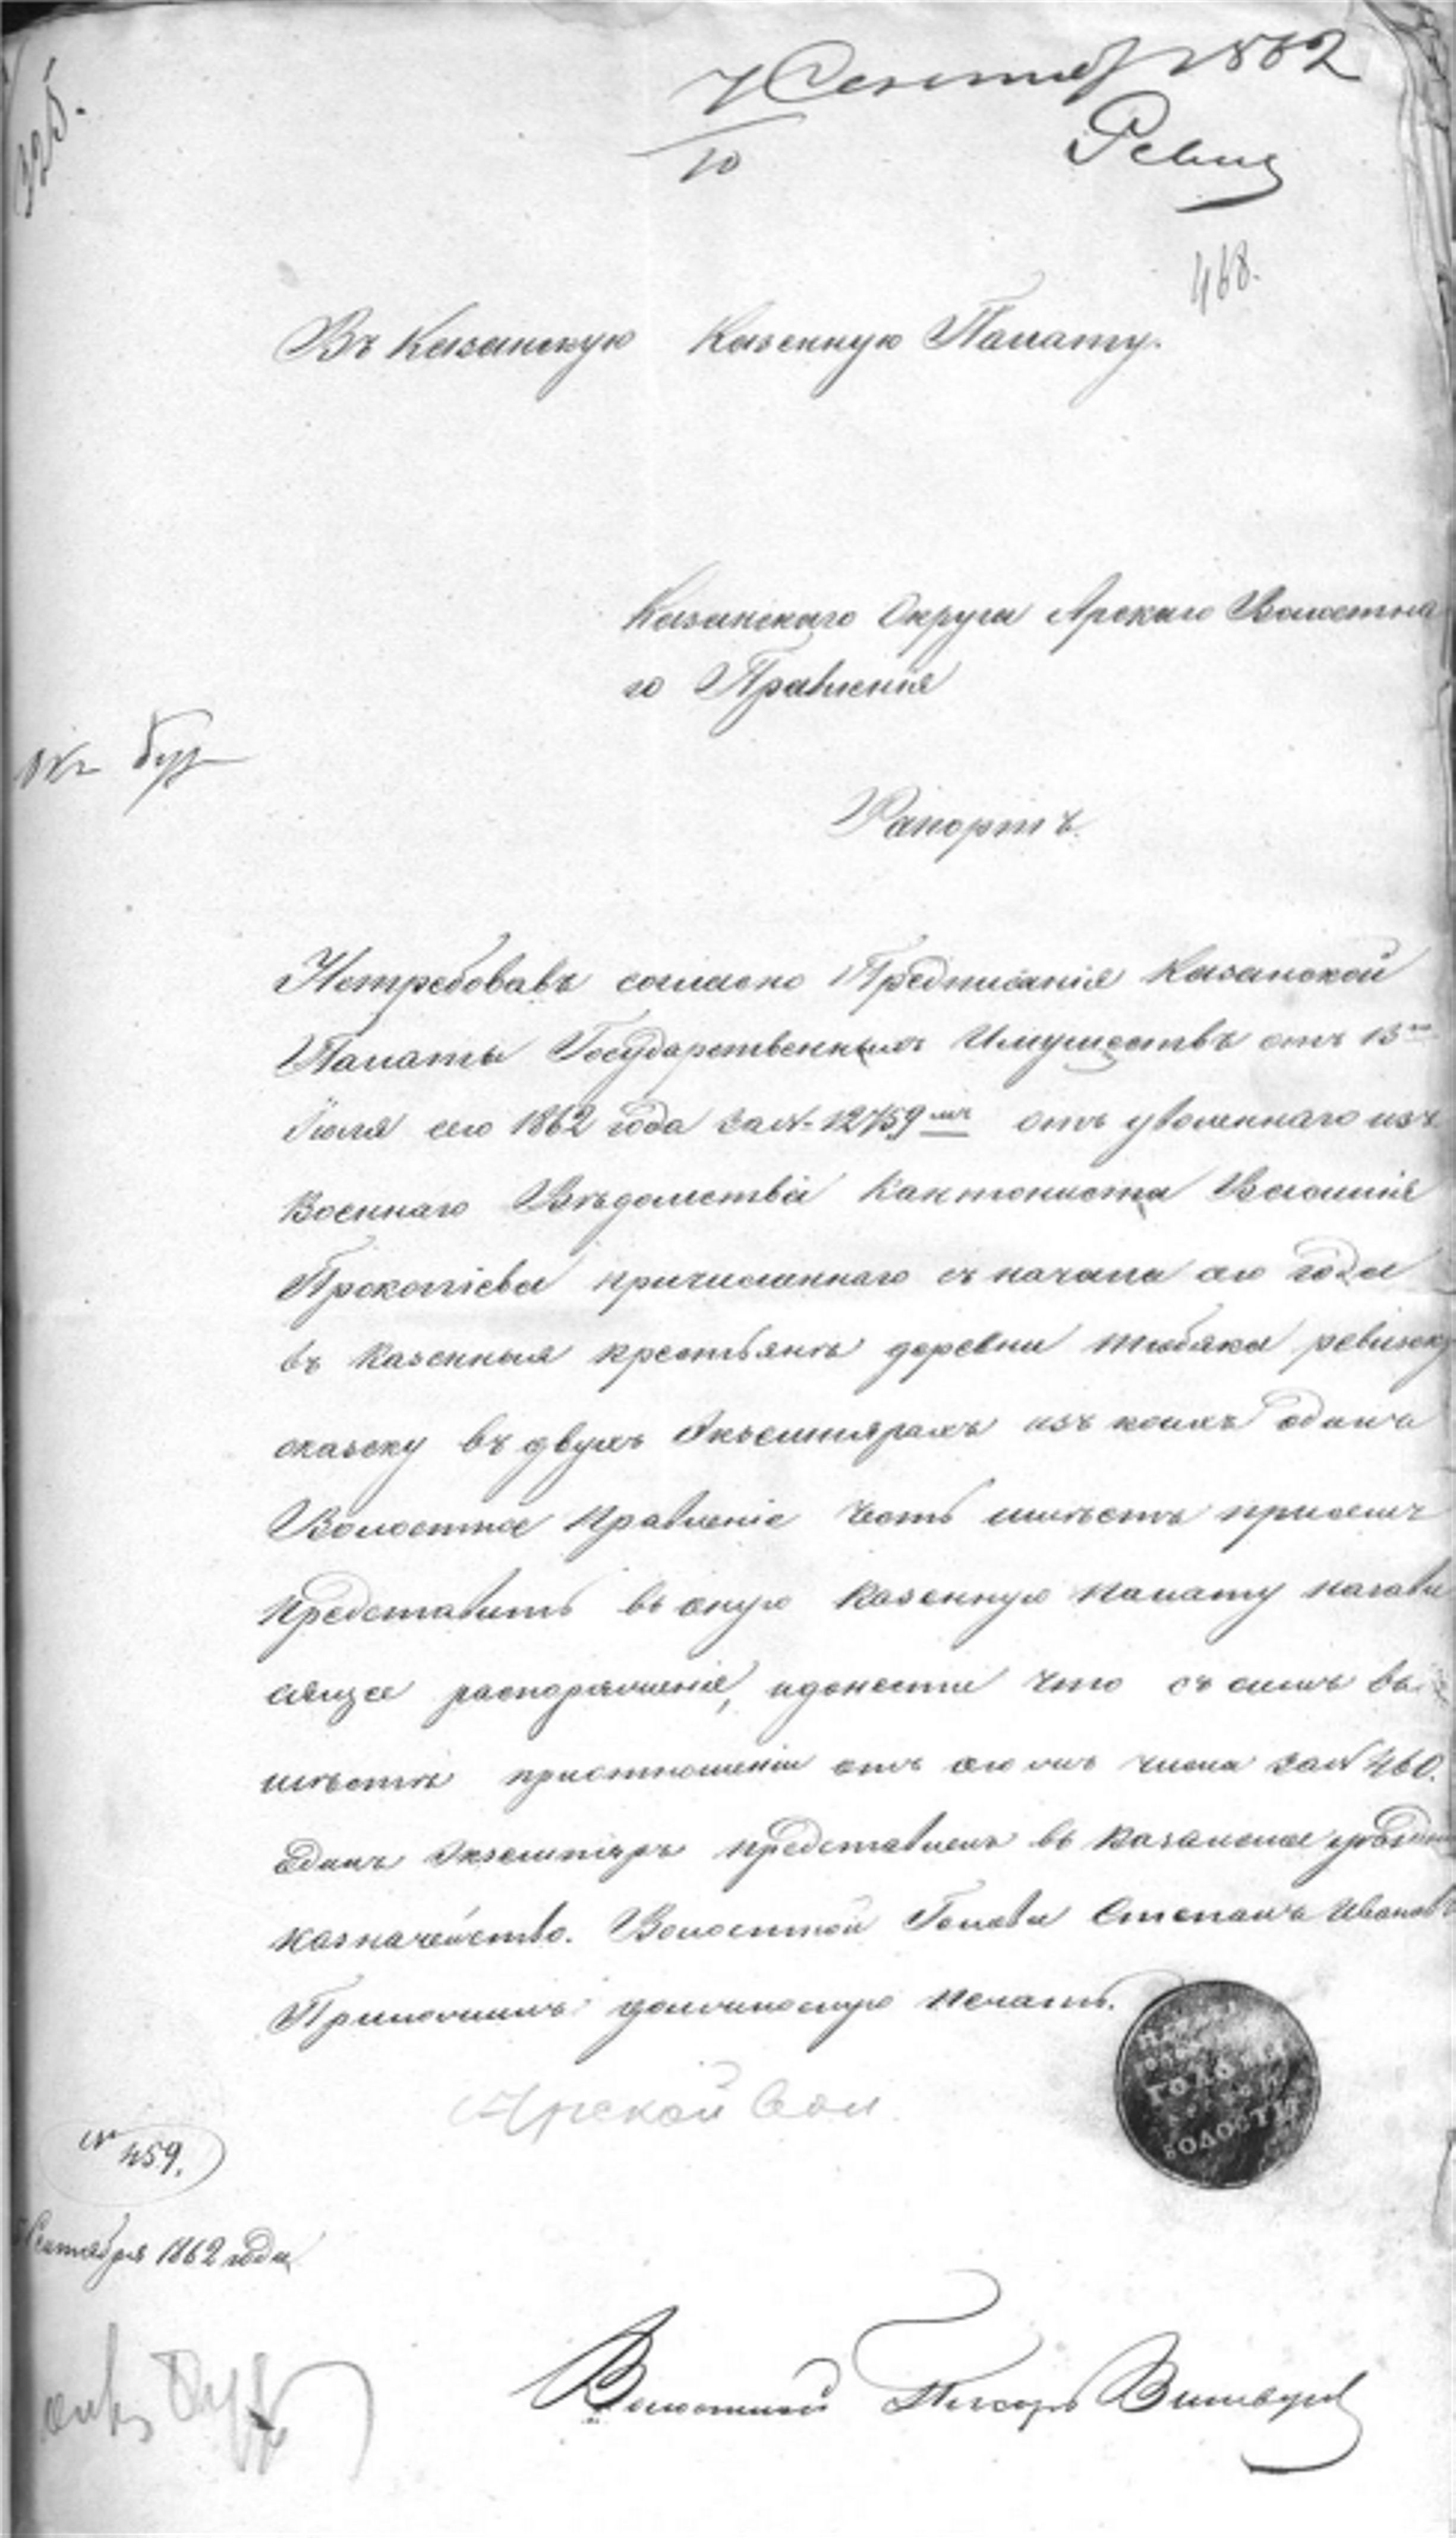 325.
7 Сентября 1862
10
Ревиз
468.
Въ Казанскую Казенную Палату.
Казанскаго Округа Арскаго Волостна
го Правленія
Рапортъ.
Истребовавъ согласно Предписанія Казанской
Палаты Государственныхъ Имуществъ отъ 13го
Іюля сего 1862 года за №- 12759мъ отъ уволеннаго изъ
Военнаго Вѣдомства Кантониста Василия
Прокопіева причисленнаго съ начала сего года
въ казенныя крестьянъ деревни Тюбяка ревизск
сказку въ двухъ Экземплярахъ изъ коихъ одинъ
Волостное Правленіе честь имѣетъ присемъ
представить въ оную Казенную Палату
сящее распоряженія, идонести что съ симъ
мѣстѣ приотношеніи отъ сего числа за № 460.
одинъ Экземпляръ представленъ въ Казанское уѣздн
казначейство. Волостной Голова Степанъ Иванов
Приложилъ должностную печать.
Арской вол
ГОЛО
ВОЛОСТИ
№ 459.
Сентября 1862 года
Волостной Писарь